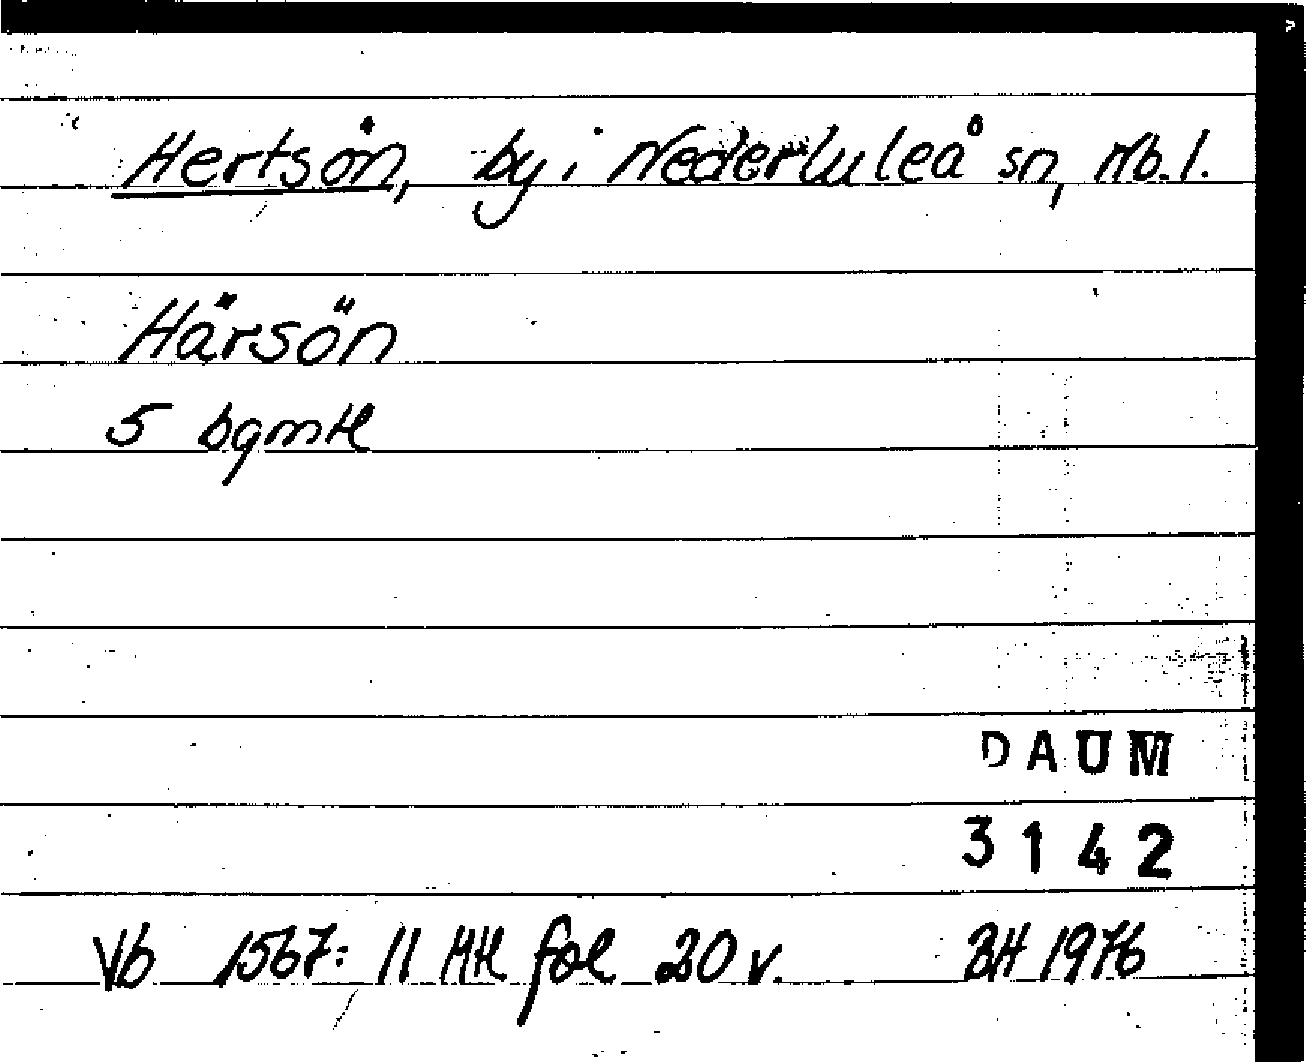 Hertsön, by i Nederluleå sn, Nb.l.
Härsön
5 bgmtl
DAUM
3142
Vb 1567: 11 Mtl fol 20 v. BH 1976